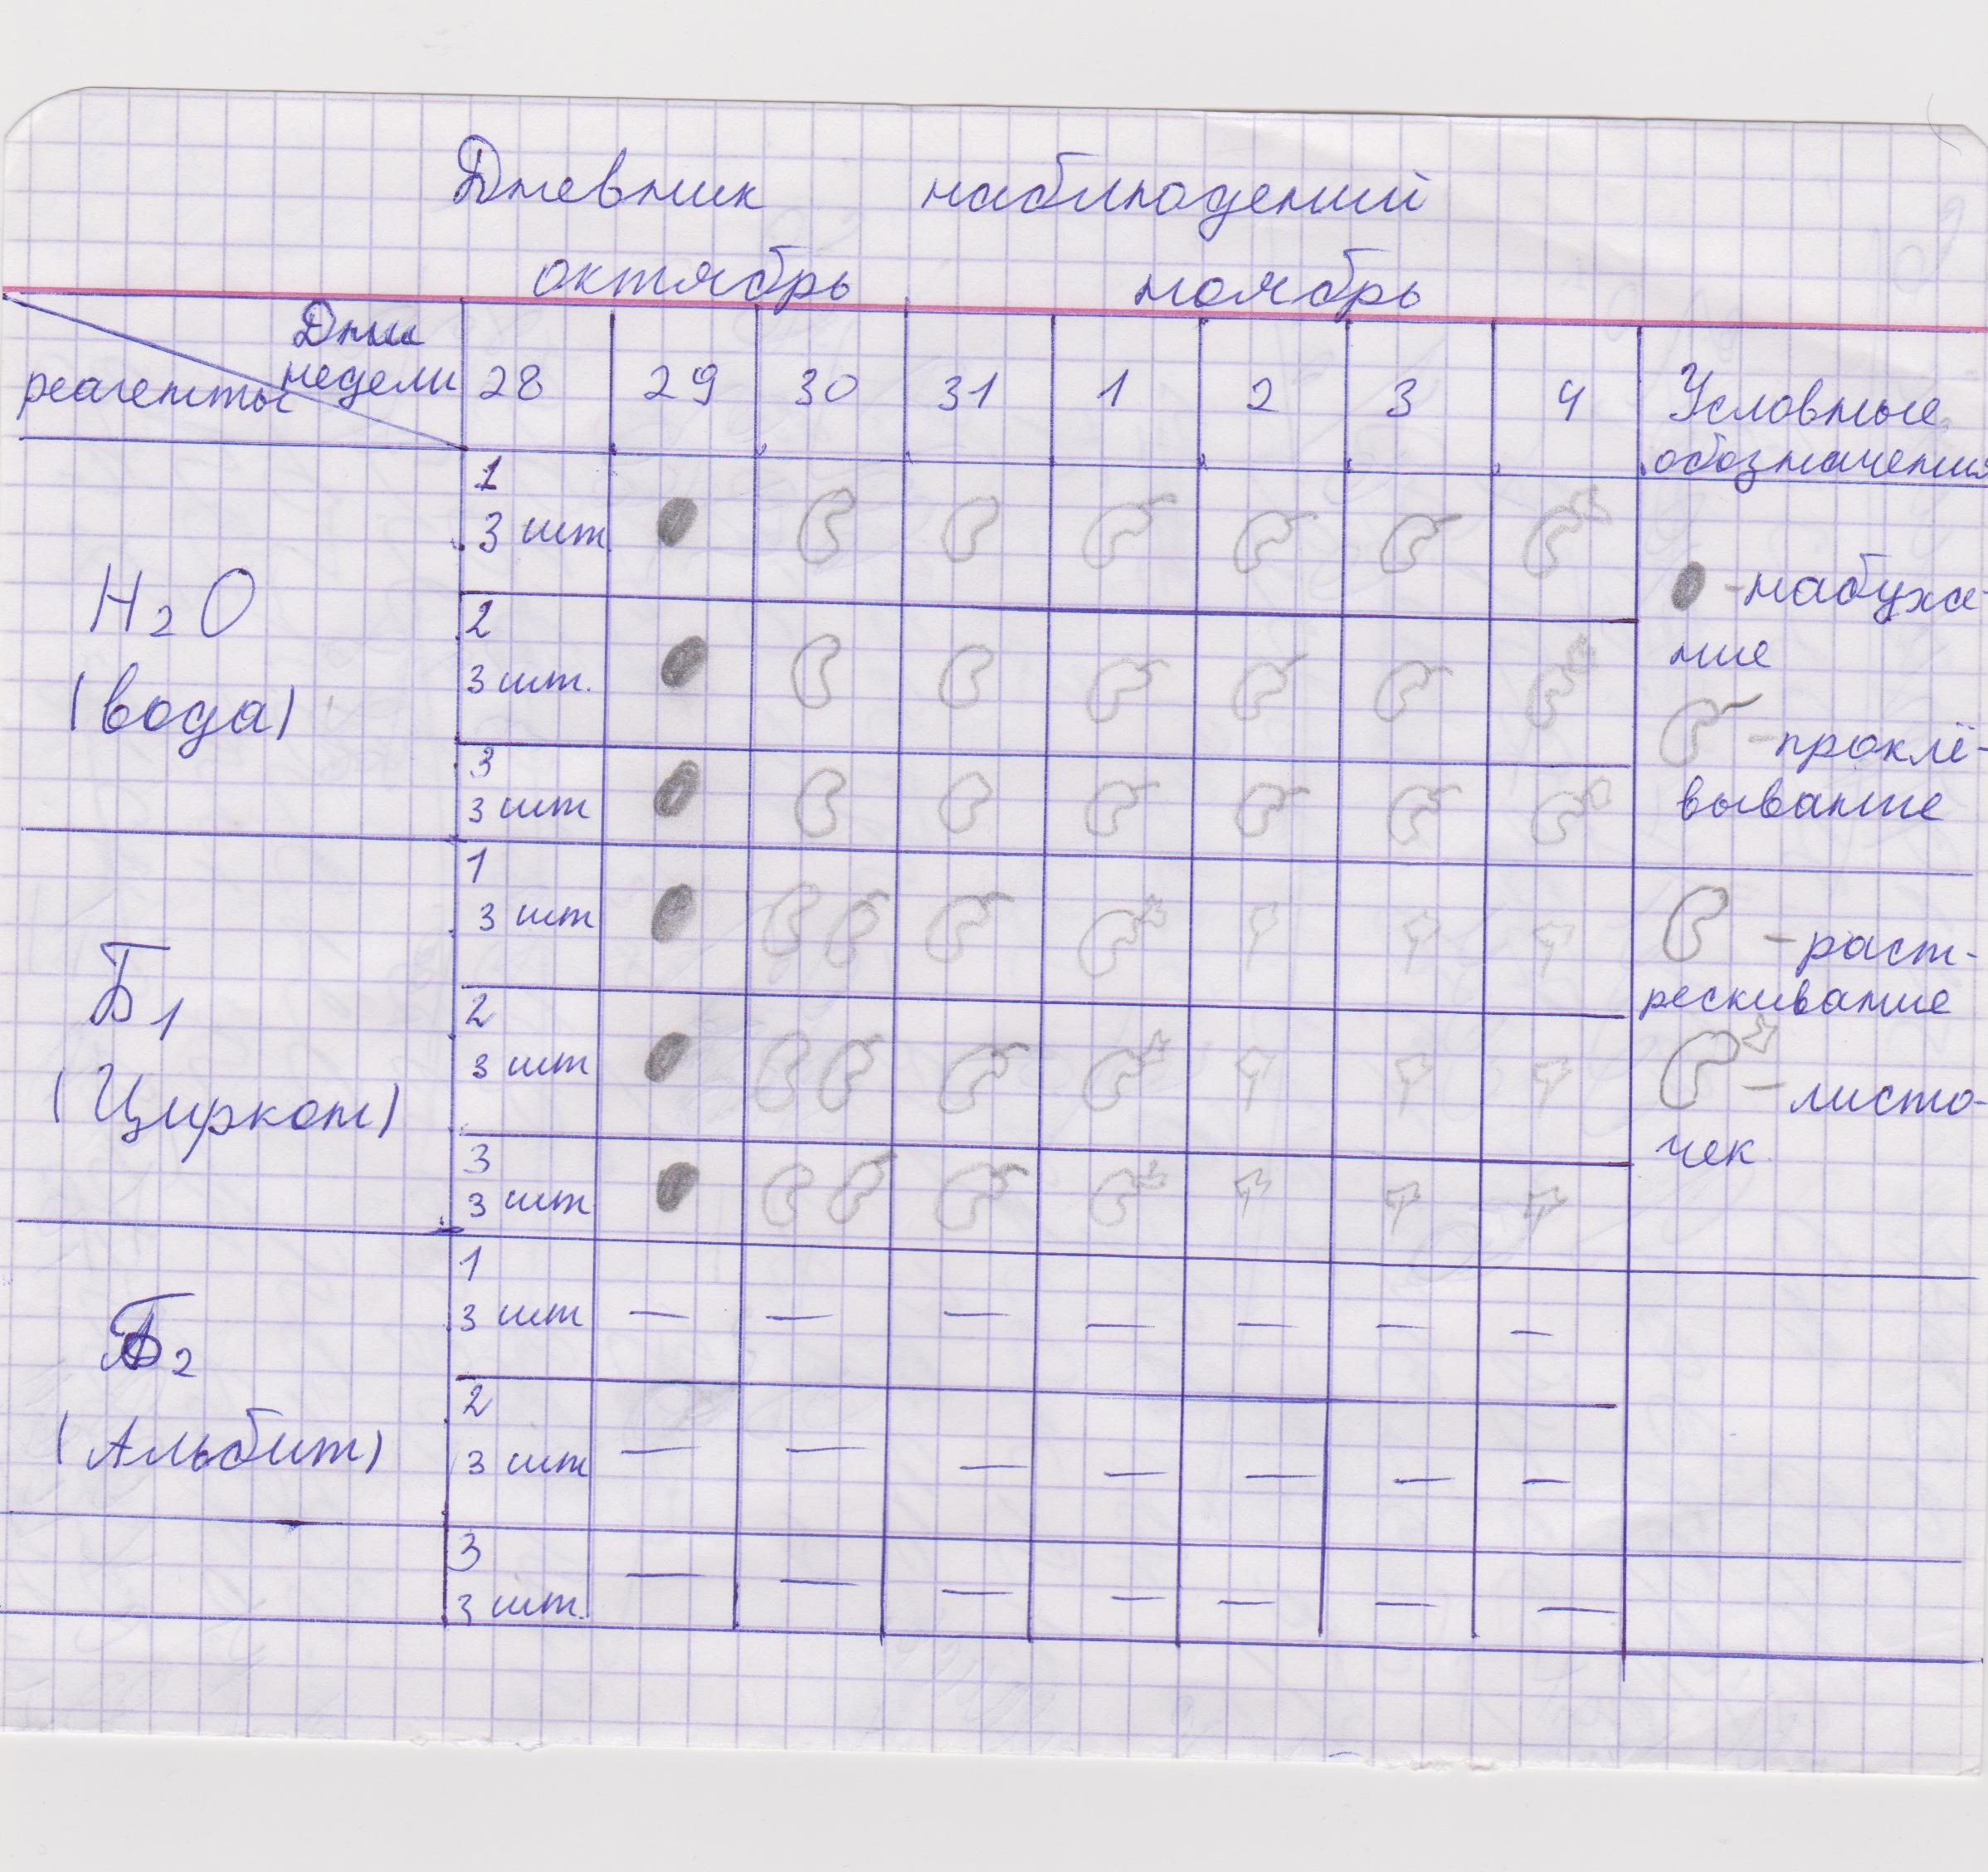 Дневник наблюдений
октябрь ноябрь
Дни
недели
реагенты
28 29 30 31 1 2 3 4
Условные
обозначения
H₂O
(вода)
1
3 шт
2
3 шт.
3
3 шт
Б₁
(Циркон)
1
3 шт
2
3 шт
3
3 шт
Б₂
(Альбит)
1
3 шт — — — — — — —
2
3 шт — — — — — — —
3
3 шт. — — — — — — —
- набуха-
ние
- проклё-
вывание
- раст-
рескивание
- листо-
чек